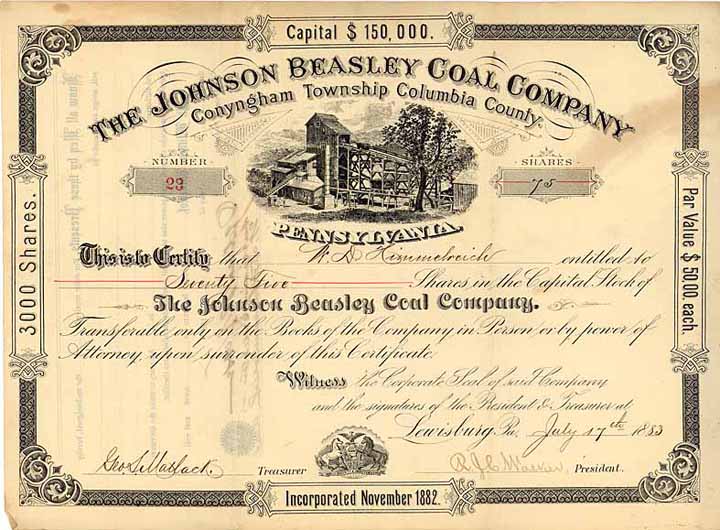 Capital $ 150,000.
THE JOHNSON BEASLEY COAL COMPANY
Conyngham Township Columbia County.
NUMBER
23
SHARES
75
PENNSYLVANIA.
3000 Shares.
Par Value $ 50.00. each.
This is to Certify that W. D. Himmelreich entitled to
Seventy Five Shares in the Capital Stock of
The Johnson Beasley Coal Company.
Transferable only on the Books of the Company in Person or by power of
Attorney upon surrender of this Certificate
Witness the Corporate Seal of said Company
and the signatures of the President & Treasurer at
Lewisburg Pa. July 17th 1883
Geo. S. Matlack. Treasurer
President.
Incorporated November 1882.